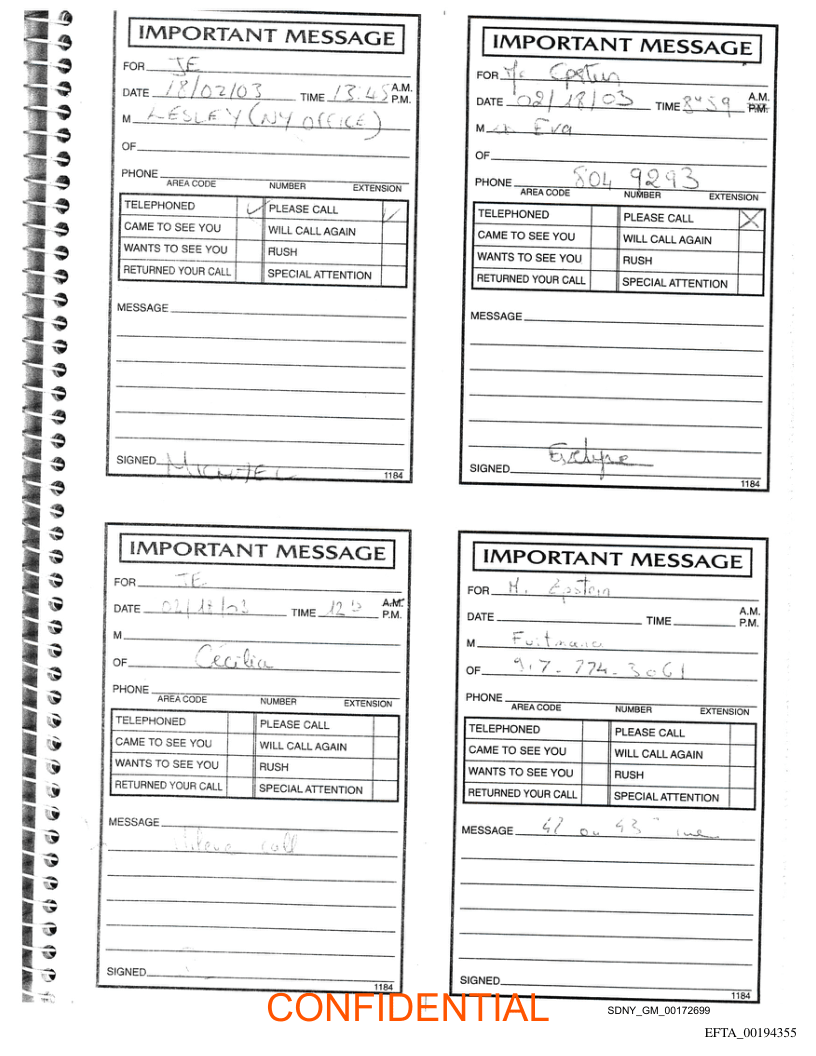 IMPORTANT MESSAGE
FOR JE
DATE 18/02/03 TIME 13:45 A.M. P.M.
M LESLEY (NY OFFICE)
OF
PHONE
AREA CODE NUMBER EXTENSION
TELEPHONED ✓ PLEASE CALL ✓
CAME TO SEE YOU WILL CALL AGAIN
WANTS TO SEE YOU RUSH
RETURNED YOUR CALL SPECIAL ATTENTION
MESSAGE
SIGNED
1184
IMPORTANT MESSAGE
FOR Epstein
DATE 02/18/03 TIME 8:59 A.M. P.M.
M Eva
OF
PHONE 804 9293
AREA CODE NUMBER EXTENSION
TELEPHONED PLEASE CALL X
CAME TO SEE YOU WILL CALL AGAIN
WANTS TO SEE YOU RUSH
RETURNED YOUR CALL SPECIAL ATTENTION
MESSAGE
SIGNED
1184
IMPORTANT MESSAGE
FOR JE
DATE TIME A.M. P.M.
M
OF Cecilia
PHONE
AREA CODE NUMBER EXTENSION
TELEPHONED PLEASE CALL
CAME TO SEE YOU WILL CALL AGAIN
WANTS TO SEE YOU RUSH
RETURNED YOUR CALL SPECIAL ATTENTION
MESSAGE
call
SIGNED
1184
IMPORTANT MESSAGE
FOR M. Epstein
DATE TIME A.M. P.M.
M
OF 917-774-3061
PHONE
AREA CODE NUMBER EXTENSION
TELEPHONED PLEASE CALL
CAME TO SEE YOU WILL CALL AGAIN
WANTS TO SEE YOU RUSH
RETURNED YOUR CALL SPECIAL ATTENTION
MESSAGE 42 ou 43
SIGNED
1184
CONFIDENTIAL
SDNY_GM_00172699
EFTA_00194355